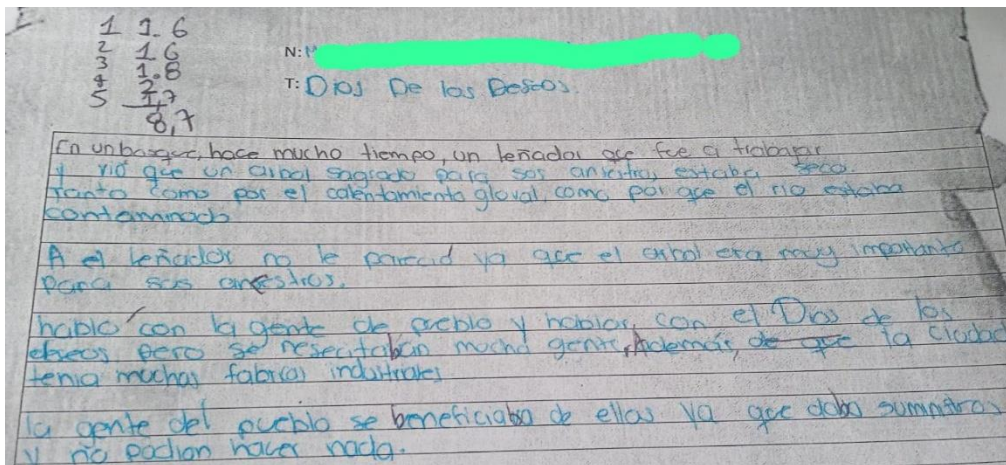 1 1.6
2 1.6
3 1.8
4 2
5 1,7
8,7
N:
T: Dios De los Deseos.
En un bosque, hace mucho tiempo, un leñador que fue a trabajar
y vió que un arbol sagrado para sos ancistros, estaba seco.
Tanto como por el calentamiento gloval, como por que el rio estaba
contaminado
A el leñador no le pareció ya que el arbol era muy importante
para sus ancestros.
hablo con la gente de pueblo y hablar con el Dios de los
deseos pero se nesecitaban mucha gente, Ademas, de que la Ciudad
tenia muchas fabricas industriales
la gente del pueblo se beneficiaba de ellas ya que daba suministros
y no podian hacer nada.